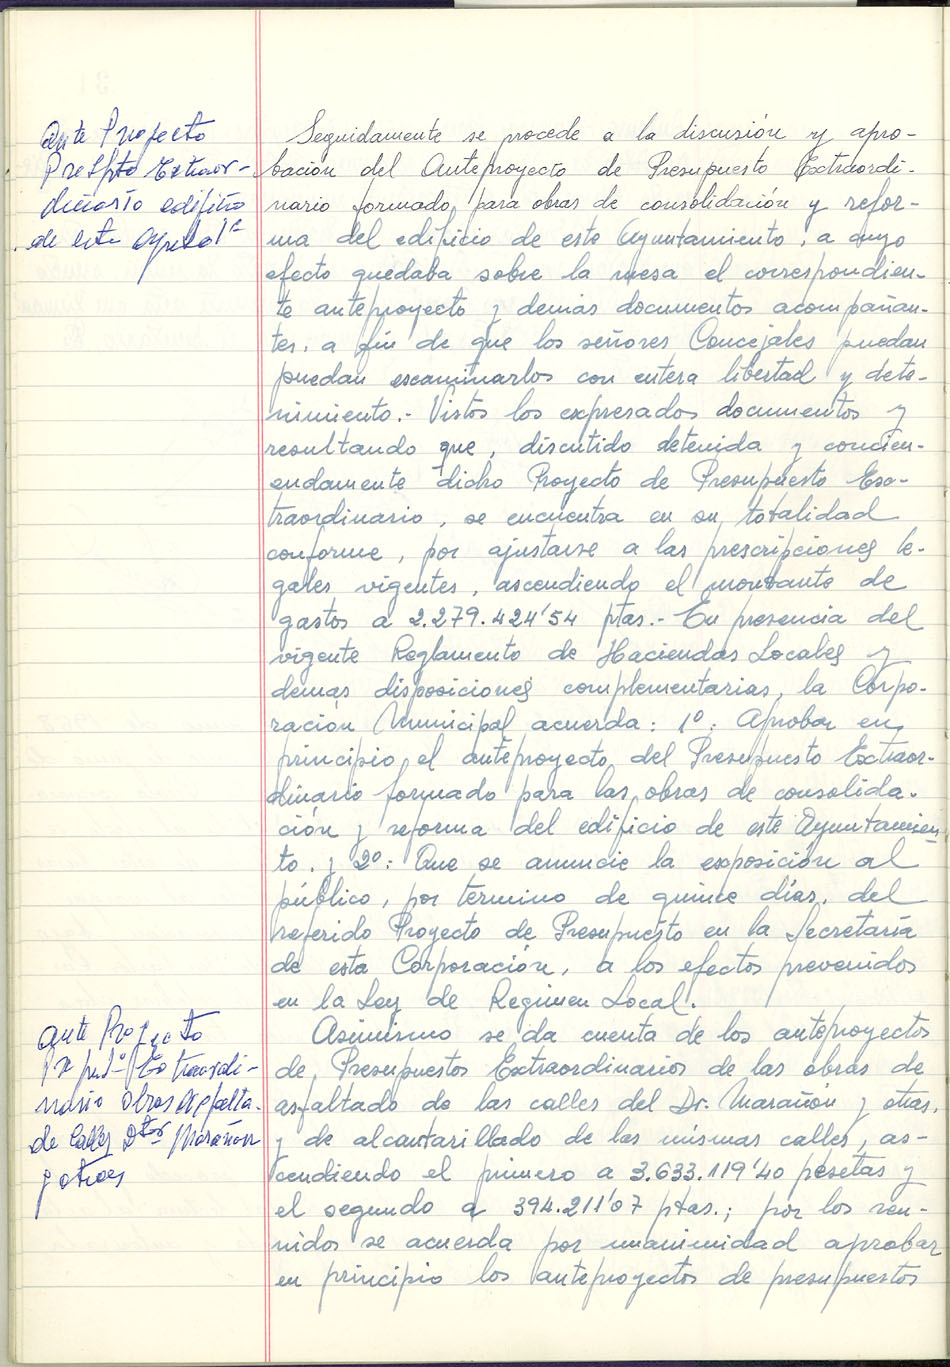 Ante Proyecto
Prespto Extraor-
dinario edificio
de este Ayto
Seguidamente se procede a la discusión y apro-
bación del Anteproyecto de Presupuesto Extraordi-
nario formado para obras de consolidación y refor-
ma del edificio de este Ayuntamiento, a cuyo
efecto quedaba sobre la mesa el correspondien-
te anteproyecto y demás documentos acompañan-
tes, a fin de que los señores Concejales puedan
puedan escaminarlos con entera libertad y dete-
nimiento.- Vistos los expresados documentos y
resultando que, discutido detenida y concien-
endamente dicho Proyecto de Presupuesto Esx-
traordinario, se encuentra en su totalidad
conforme, por ajustarse a las prescripciones le-
gales vigentes, ascendiendo el montante de
gastos a 2.279.424'54 ptas.- En presencia del
vigente Reglamento de Haciendas Locales y
demas disposiciones complementarias, la Corpo-
ración Municipal acuerda: 1º: Aprobar en
principio el anteproyecto del Presupuesto Extraor-
dinario formado para las obras de consolida-
ción y reforma del edificio de este Ayuntamien-
to. y 2º: Que se anuncie la exposición al
público, por término de quince días, del
referido Proyecto de Presupuesto en la Secretaría
de esta Corporación, a los efectos prevenidos
en la Ley de Regimen Local.
Ante Proyecto
Extraordi-
nario obras asfalta-
de calles Dtor Marañon
y otras
Asimismo se da cuenta de los anteproyectos
de Presupuestos Extraordinarios de las obras de
asfaltado de las calles del Dr. Marañón y otras,
y de alcantarillado de las mismas calles, as-
cendiendo el primero a 3.633.119'40 pesetas y
el segundo a 394.211'07 ptas.; por los reu-
nidos se acuerda por unanimidad aprobar
en principio los anteproyectos de presupuestos